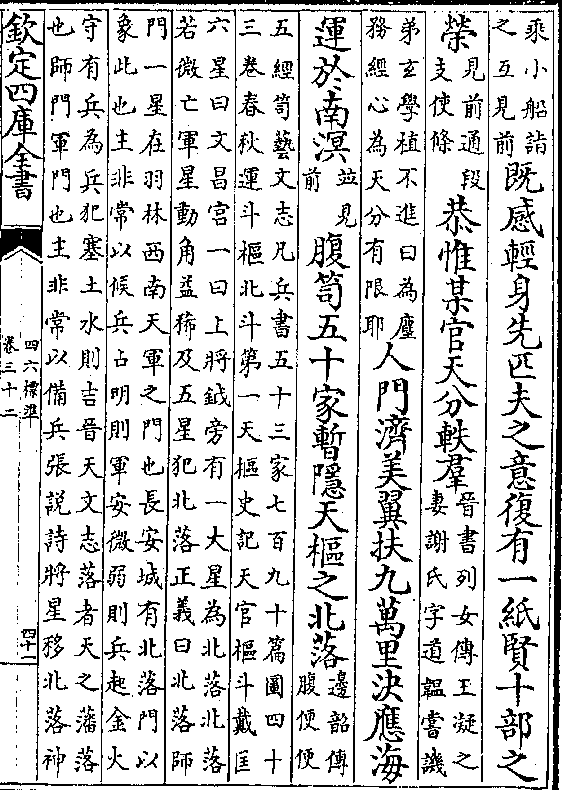 乘小船詣
之互見前
既感輕身先匹夫之意復有一紙賢十部之
榮
見前通段
支使條
恭惟某官天分軼羣
晉書列女傳王凝之
妻謝氏字道韞嘗譏
弟玄學植不進曰為塵
務經心為天分有限耶
人門濟美翼扶九萬里決應海
運於南溟
並見
前
腹笥五十家暫隱天樞之北落
邊韶傳
腹便便
五經笥藝文志凡兵書五十三家七百九十篇圖四十
三卷春秋運斗樞北斗第一天樞史記天官樞斗戴匡
六星曰文昌宮一曰上將鉞旁有一大星為北落北落
若微亡軍星動角益稀及五星犯北落正義曰北落師
門一星在羽林西南天軍之門也長安城有北落門以
象此也主非常以候兵占明則軍安微弱則兵起金火
守有兵為兵犯塞土水則吉晉天文志落者天之藩落
也師門軍門也主非常以備兵張說詩將星移北落神
欽定四庫全書
四六標準
卷三十二
四十一